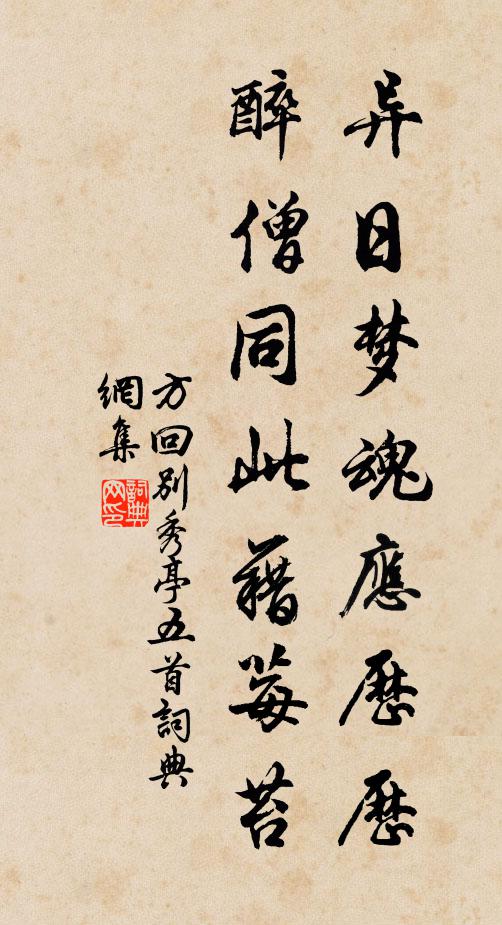 异日梦魂應歷歷
醉僧同此藉莓苔
方回别秀亭五首詞典
網集
詞典
网印